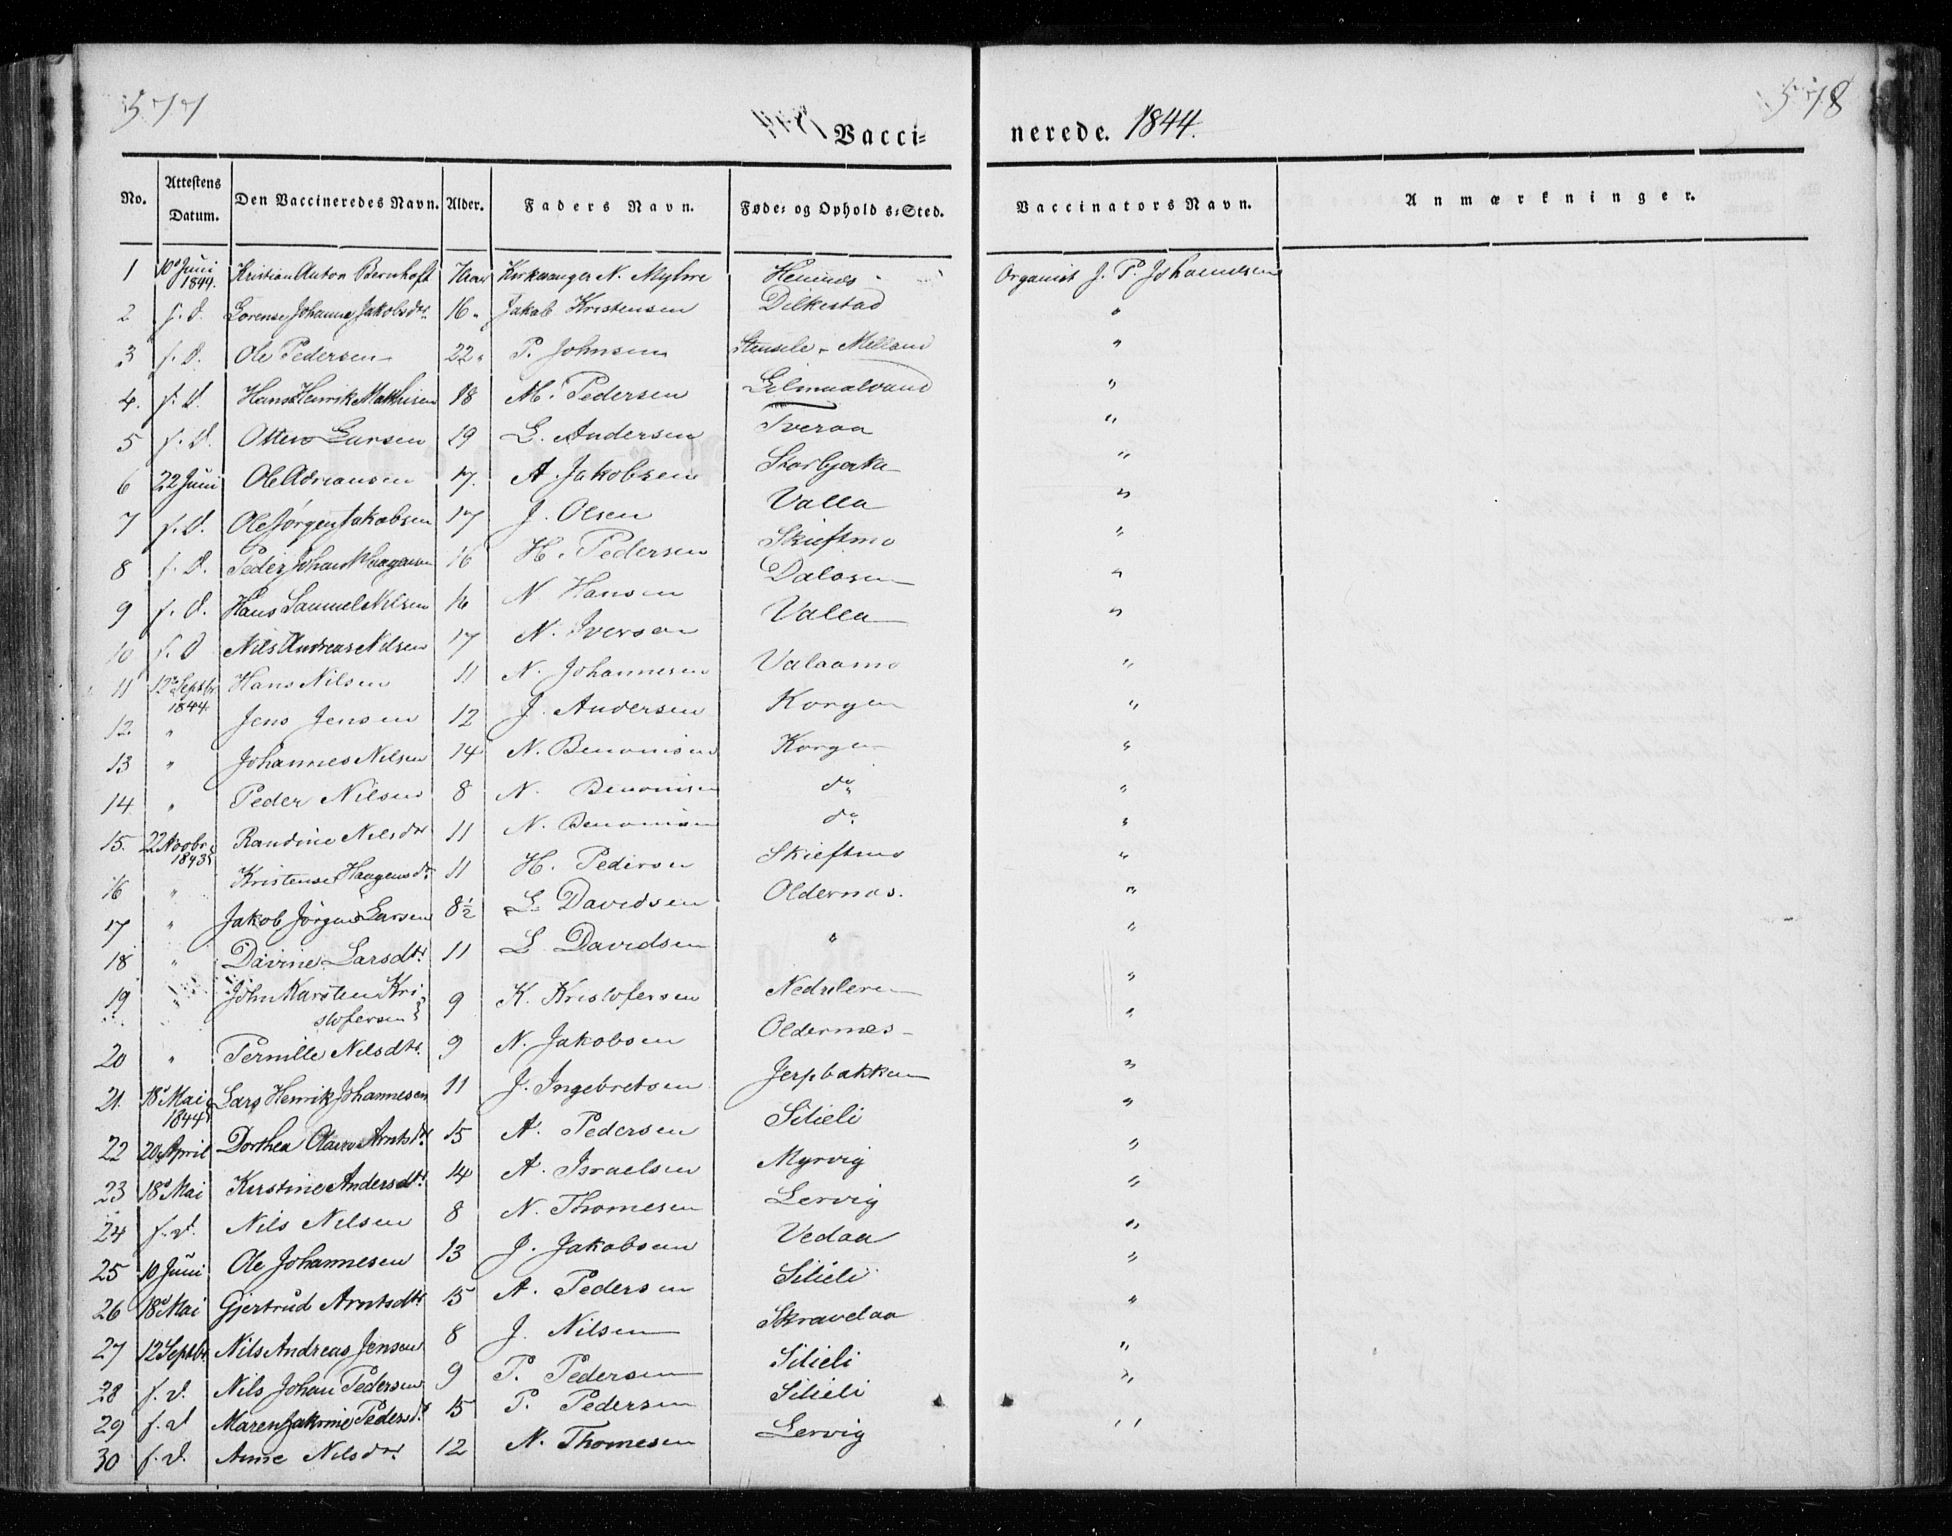 577
578
Vacci= nerede. 1844.
No. Attestens Datum. Den Vaccineredes Navn. Alder. Faders Navn. Føde= og Opholds=Sted. Vaccinators Navn. Anmærkninger.
1 10d Juni 1844. Kristian Anton Bernhoft 7 Kirkesanger N. Myhre Hemnes Organist J. P. Johannesen
2 f. d. Lorense Johanna Jakobsdr. 16 " Jakob Kristensen Dilkestad "
3 f. d. Ole Pedersen 22 " P. Johnsen Stensele - Melland "
4. f. d. Hans Henrik Mathisen 18 M. Pedersen "
5 f. d. Larsen 19 L. Andersen Tveraa "
6 22 Juni Ole Adriansen 17. A. Jakobsen Storbjerka "
7 f. d. Ole Jørgen Jakobsen 17 J. Olsen Valla "
8 f. d. Peder Johan Haagensen 16 H. Pedersen Skieftmo "
9 f. d. Hans Samuel Nilsen 16 N Hansen Dalosen "
10 f. d Nils Andreas Nilsen 17 N. Iversen Valla "
11 12te Septbr 1844. Hans Nilsen 11 N. Johannesen Valaamo "
12. " Jens Jensen 12 J. Andersen Korgen "
13 " Johannes Nilsen 14 N. Benonisen Korgen "
14 " Peder Nilsen 8 N. Benonisen do "
15. 22 Novbr 1843 Randine Nilsdr 11 N. Benonisen do "
16 " Kristense Haagensdr 11 H. Pedersen Skieftmo "
17 " Jakob Jørgen Larsen 8½ L. Davidsen Oldernes. "
18 " Davine Larsdtr. 11 L. Davidsen " "
19 " John Karsten Kri-
stofersen 9 K. Kristofersen Nedreleren "
20 " Pernille Nilsdtr. 9 N. Jakobsen Oldernes "
21. 18d Mai 1844 Lars Henrik Johannesen 11 J. Ingebretsen Jerpbakken "
22 20 April Dorthea Arntsdr 15 A. Pedersen Silieli "
23 18d Mai Kirstine Andersdtr 14 A. Israelsen Myrvig "
24 f. d. Nils Nilsen 8 N. Thomesen Lervig "
25 10 Juni Ole Johannesen 13 J. Jakobsen Vedaa "
26 18d Mai Gjertrud Arntsdtr 15 A. Pedersen Silieli "
27 12 Septbr Nils Andreas Jensen 8 J. Nilsen Skravelaa "
28 f. d. Nils Johan Pedersen 9 P. Pedersen Silieli "
29 f. d Maren Jakrine Pedersdr 15 P. Pedersen Silieli "
30 f. d. Anne Nilsdtr. 12 N. Thomesen Lervig "